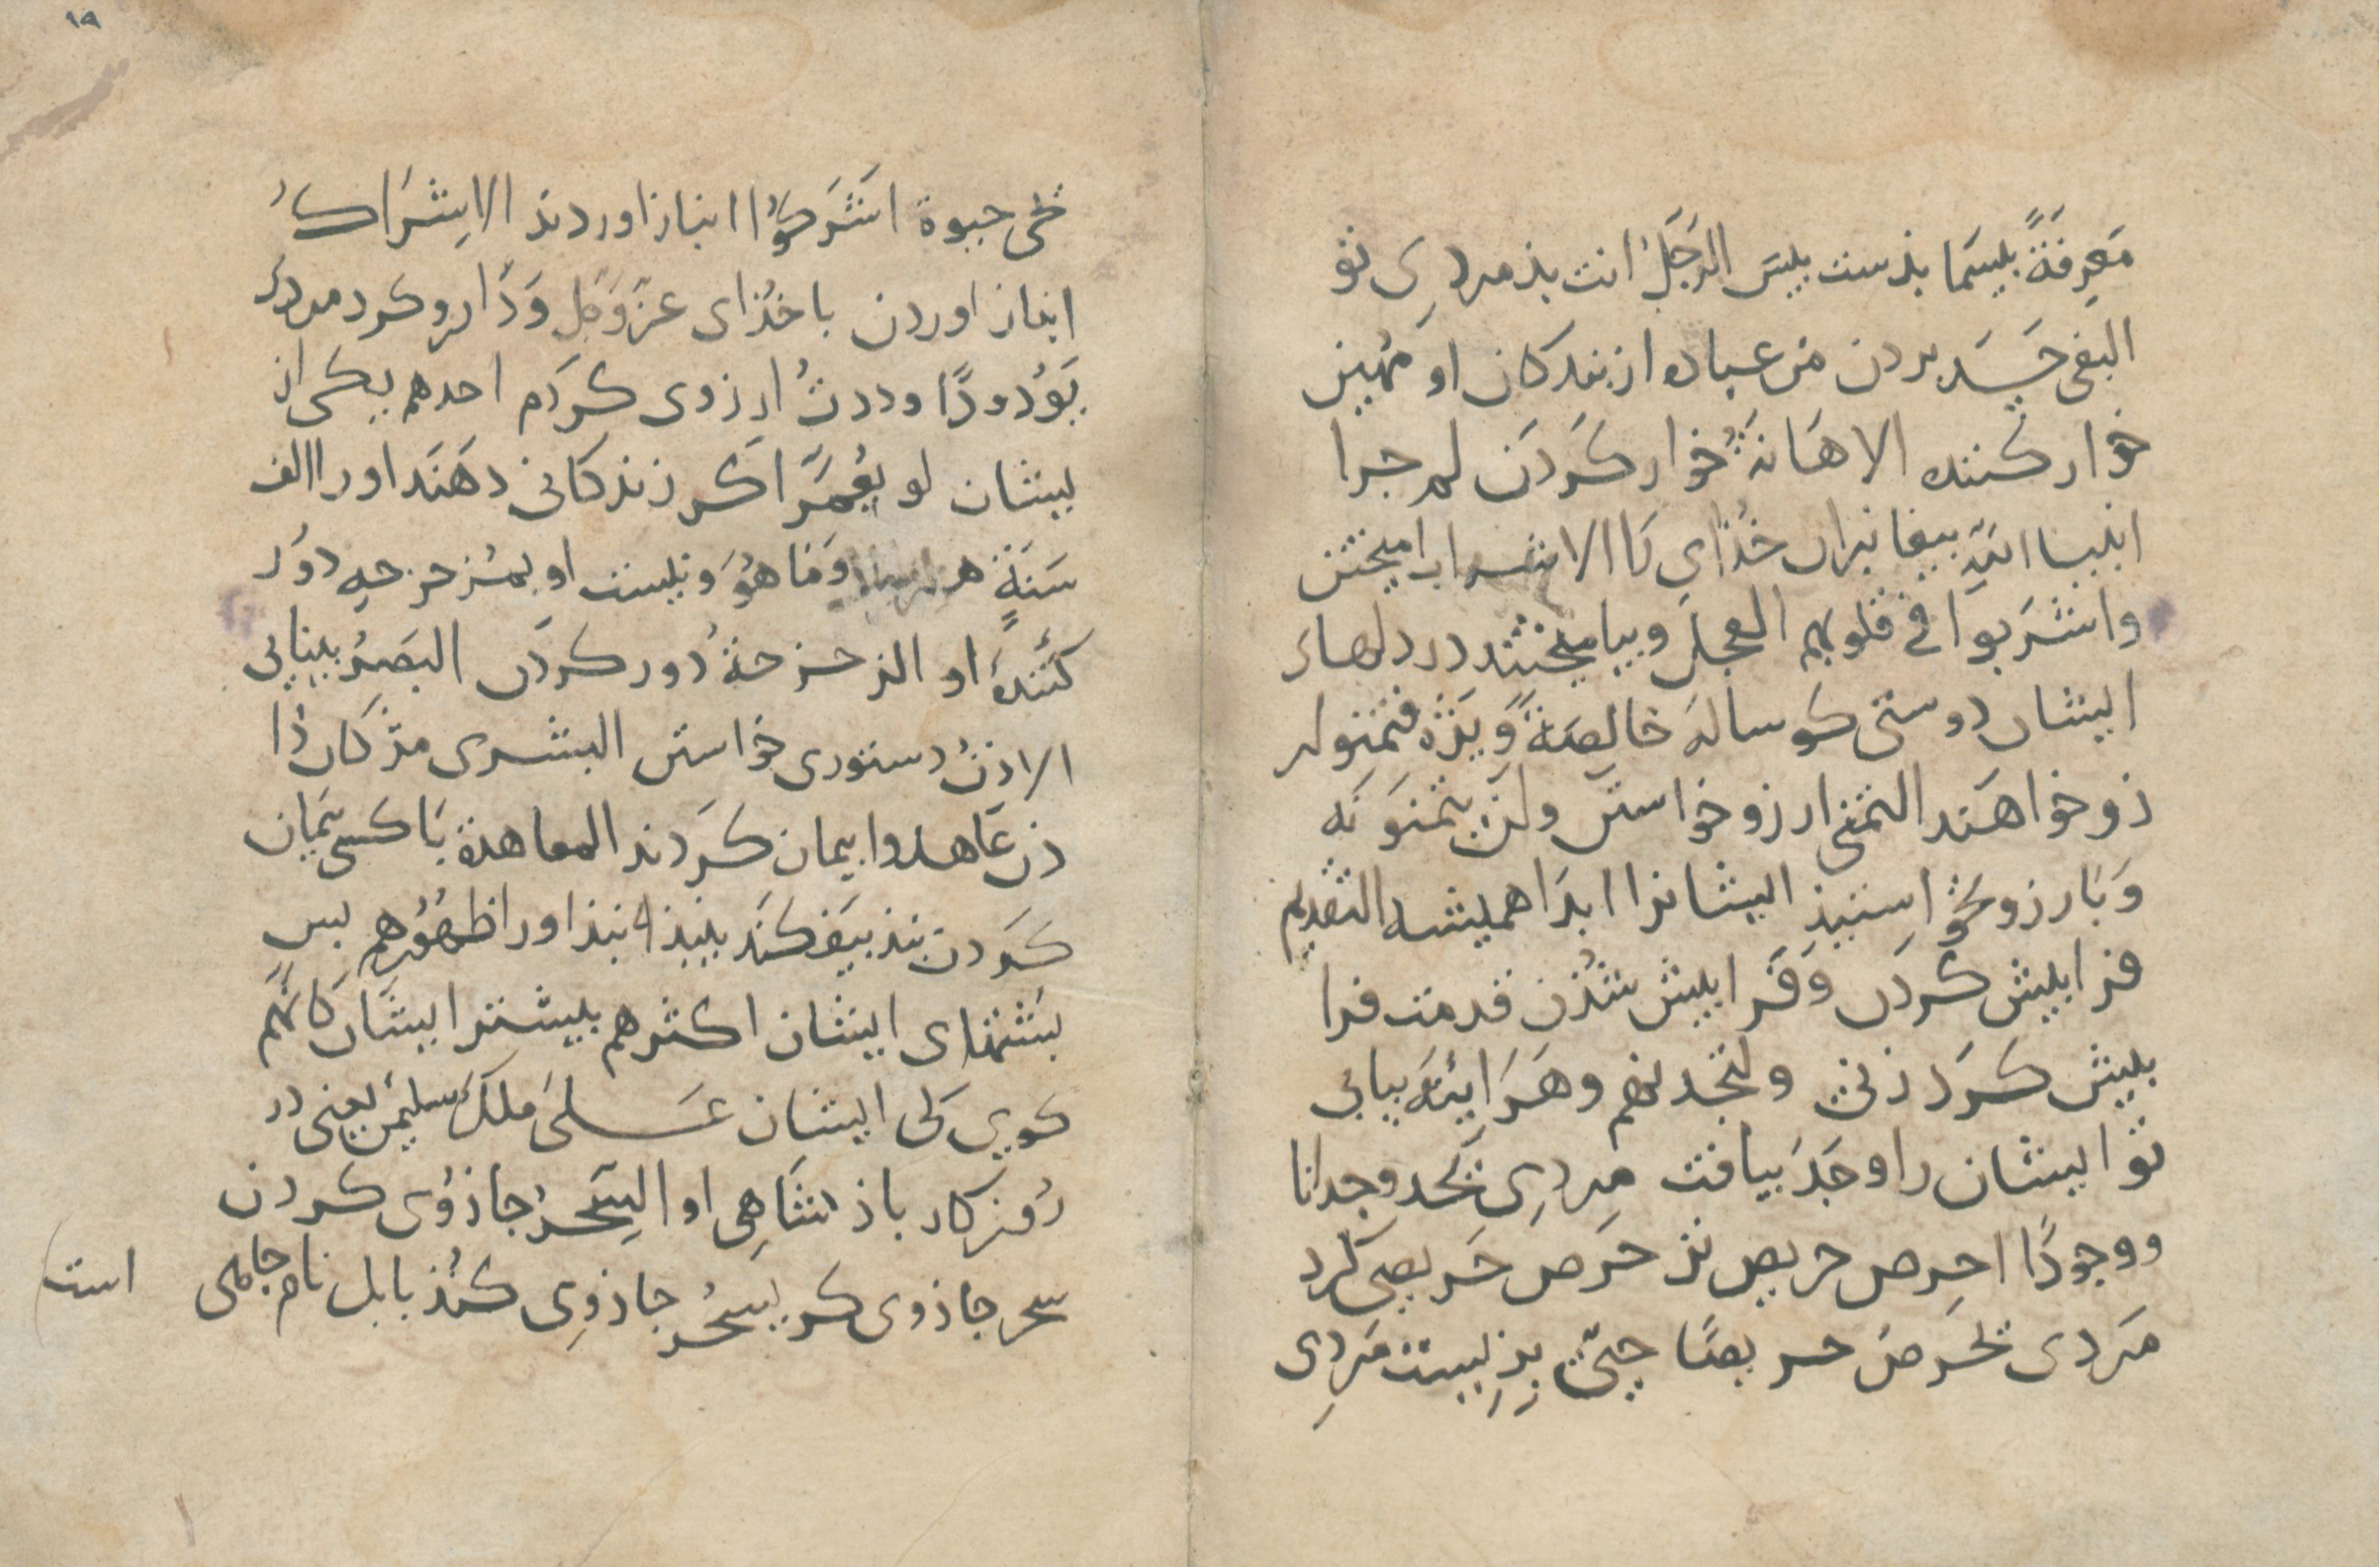 مَعرِفَةً بیسَما بذست بیس الرَجُلُ انت بذ مردی تو
البغی حَسَد بردن من عباده از بندکان او مُهین
خوار کننده الاهَانَةُ خوار کَردَن لم جرا
انبیا الله بیغانبران خُذای را الاشراب امیختن
واشرَبوا فی قلوبهم العجلَ وبیامیختند در دلهاء
ایشان دوستی کوساله خالِصَةً وَیژه فتمنو لر
زو خواهند التمنی ارزو خواستن ولن یتمنَوَنَه
وَبارزو نخواستیذ ایشانرا ابدَا همیشه التقدیم
فرابیش کَردن وَفَرا بیش شُذن قدمت فرا
بیش کَرد زنی ولتجدنهم وهَرَاینَهَ بیابی
تو ایشان را وجَدَ بیافت مردی تَجَد وجدانا
ووجودًا احرص حریص تر حَرصَ حَریصی کرد
مَردی یَحرصُ حرصًا جیّ بزیست مَردِی
یَحیی حیوة اشرَکُوا انباز اوردند الاِشرَاکُ
انباز اوردن باخُذای عَزوَجَل وَدَّ ارزو کرد مردی
یَوَدُّ ودًّا وددتُ ارزوی کَردَم احدهم یکی از
یشان لو یُعَمَّر اکَر زندکانی دهَند او را الف
سَنَةٍ هزار سال وَمَا هُوَ ونیست او بمزحزحه دوَر
کنَندهٔ او الزحزحةُ دُور کردن البَصَرُ بینایی
الاذنُ دستوری خواستن البشری مژدکان دا
دن عَاهدوا بیمان کَردند المعاهدة بَا کسی بیمان
کَردن نبذ بیَفکَند ینبذ نبذا وراظهُورهم بس
بشتهای ایشان اکثرهم بیشتر ایشان کَانهُم
کویی کی ایشان عَلی مَلک سلیمٰن یعنی در
روزکار باذشَاهِی او السِّحرُ جاذُوی کردن
سحر جاذوی کر یسحُر جاذوِی کُنذ بابل نام جایی است
١٩